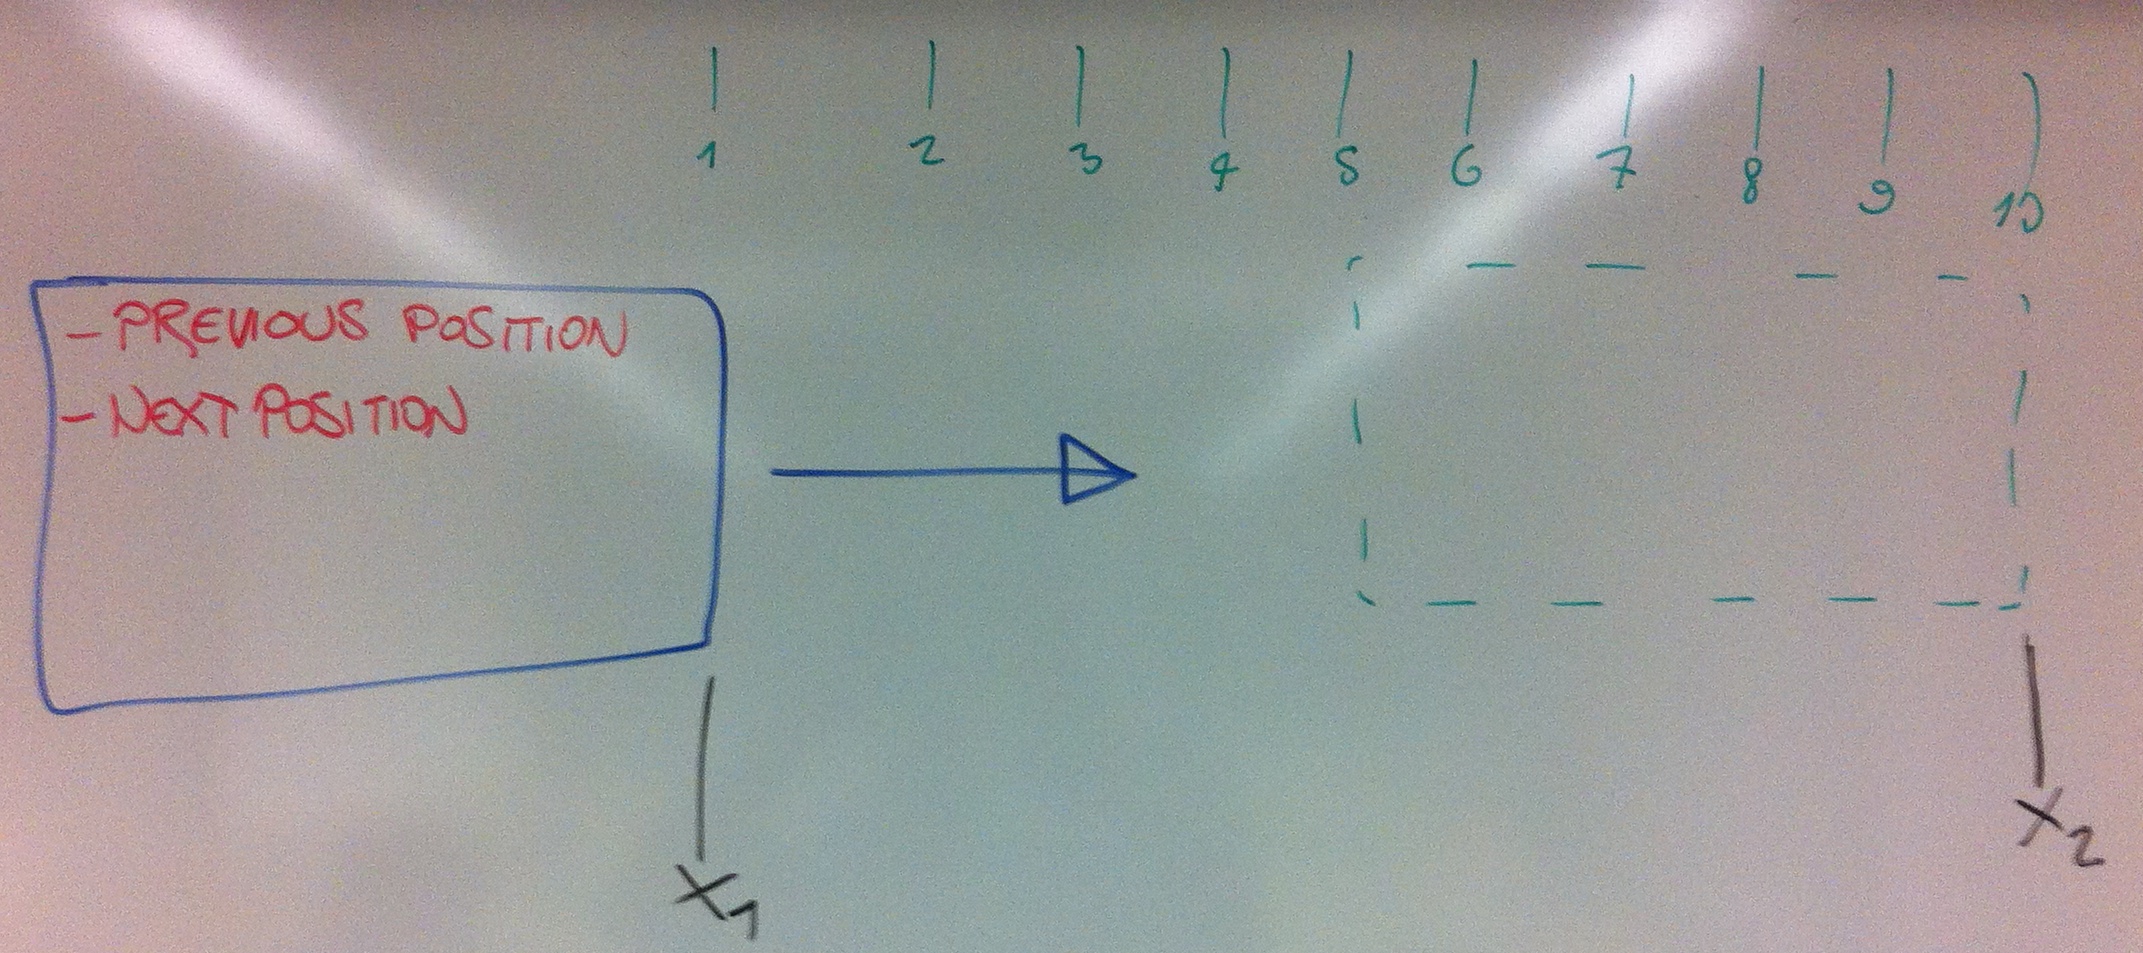 1 2 3 4 5 6 7 8 9 10
- PREVIOUS POSITION
- NEXT POSITION
X1
X2